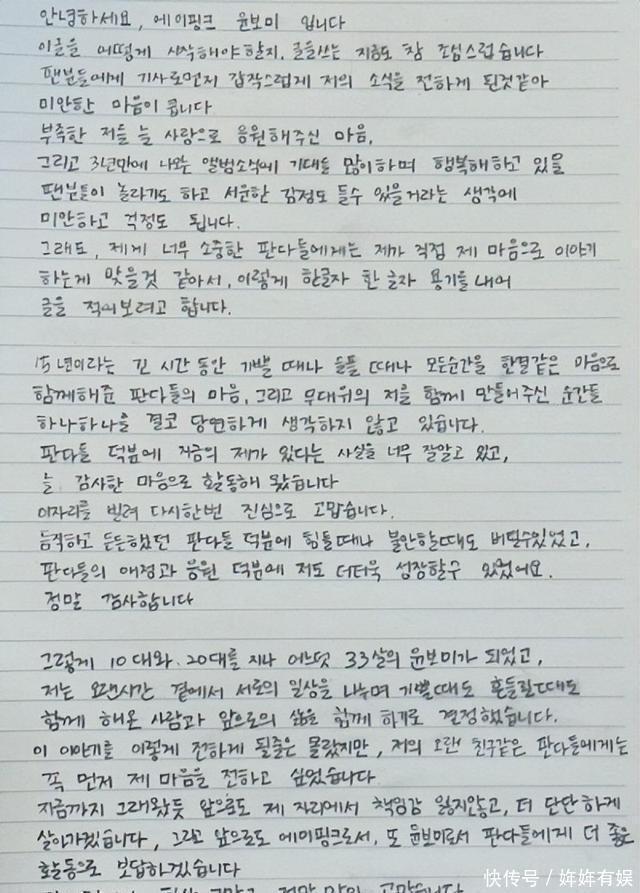 안녕하세요, 에이핑크 윤보미 입니다
이글을 어떻게 시작해야 할지, 글을쓰는 지금도 참 조심스럽습니다
팬분들에게 기사로먼저 갑작스럽게 저의 소식을 전하게 된것같아
미안한 마음이 큽니다
부족한 저를 늘 사랑으로 응원해주신 마음,
그리고 3년만에 나오는 앨범소식에 기대를 많이하며 행복해하고 있을
팬분들이 놀라기도 하고 서운한 감정도 들수 있을거라는 생각에
미안하고 걱정도 됩니다.
그래도, 제게 너무 소중한 판다들에게는 제가 직접 제 마음으로 이야기
하는게 맞을것 같아서, 이렇게 한글자 한 글자 용기를 내어
글을 적어보려고 합니다.
15년이라는 긴 시간 동안 기쁠 때나 힘들 때나 모든순간을 한결같은 마음으로
함께해준 판다들의 마음, 그리고 무대위의 저를 함께 만들어주신 순간들
하나하나를 결코 당연하게 생각하지 않고 있습니다.
판다들 덕분에 지금의 제가 있다는 사실을 너무 잘알고 있고,
늘 감사한 마음으로 활동해 왔습니다
이자리를 빌려 다시한번 진심으로 고맙습니다.
듬직하고 든든했던 판다들 덕분에 힘들때나 불안할때도 버틸수있었고,
판다들의 애정과 응원 덕분에 저도 더더욱 성장할수 있었어요.
정말 감사합니다
그렇게 10대와 20대를 지나 어느덧 33살의 윤보미가 되었고,
저는 오랜시간 곁에서 서로의 일상을 나누며 기쁠때도 흔들릴때도
함께 해온 사람과 앞으로의 삶을 함께 하기로 결정했습니다.
이 이야기를 이렇게 전하게 될줄은 몰랐지만, 저의 오랜 친구같은 판다들에게는
꼭 먼저 제 마음을 전하고 싶었습니다
지금까지 그래왔듯 앞으로도 제 자리에서 책임감 잃지않고, 더 단단하게
살아가겠습니다, 그리고 앞으로도 에이핑크로서, 또 윤보미로서 판다들에게 더 좋은
활동으로 보답하겠습니다
快传号／姩姩有娱